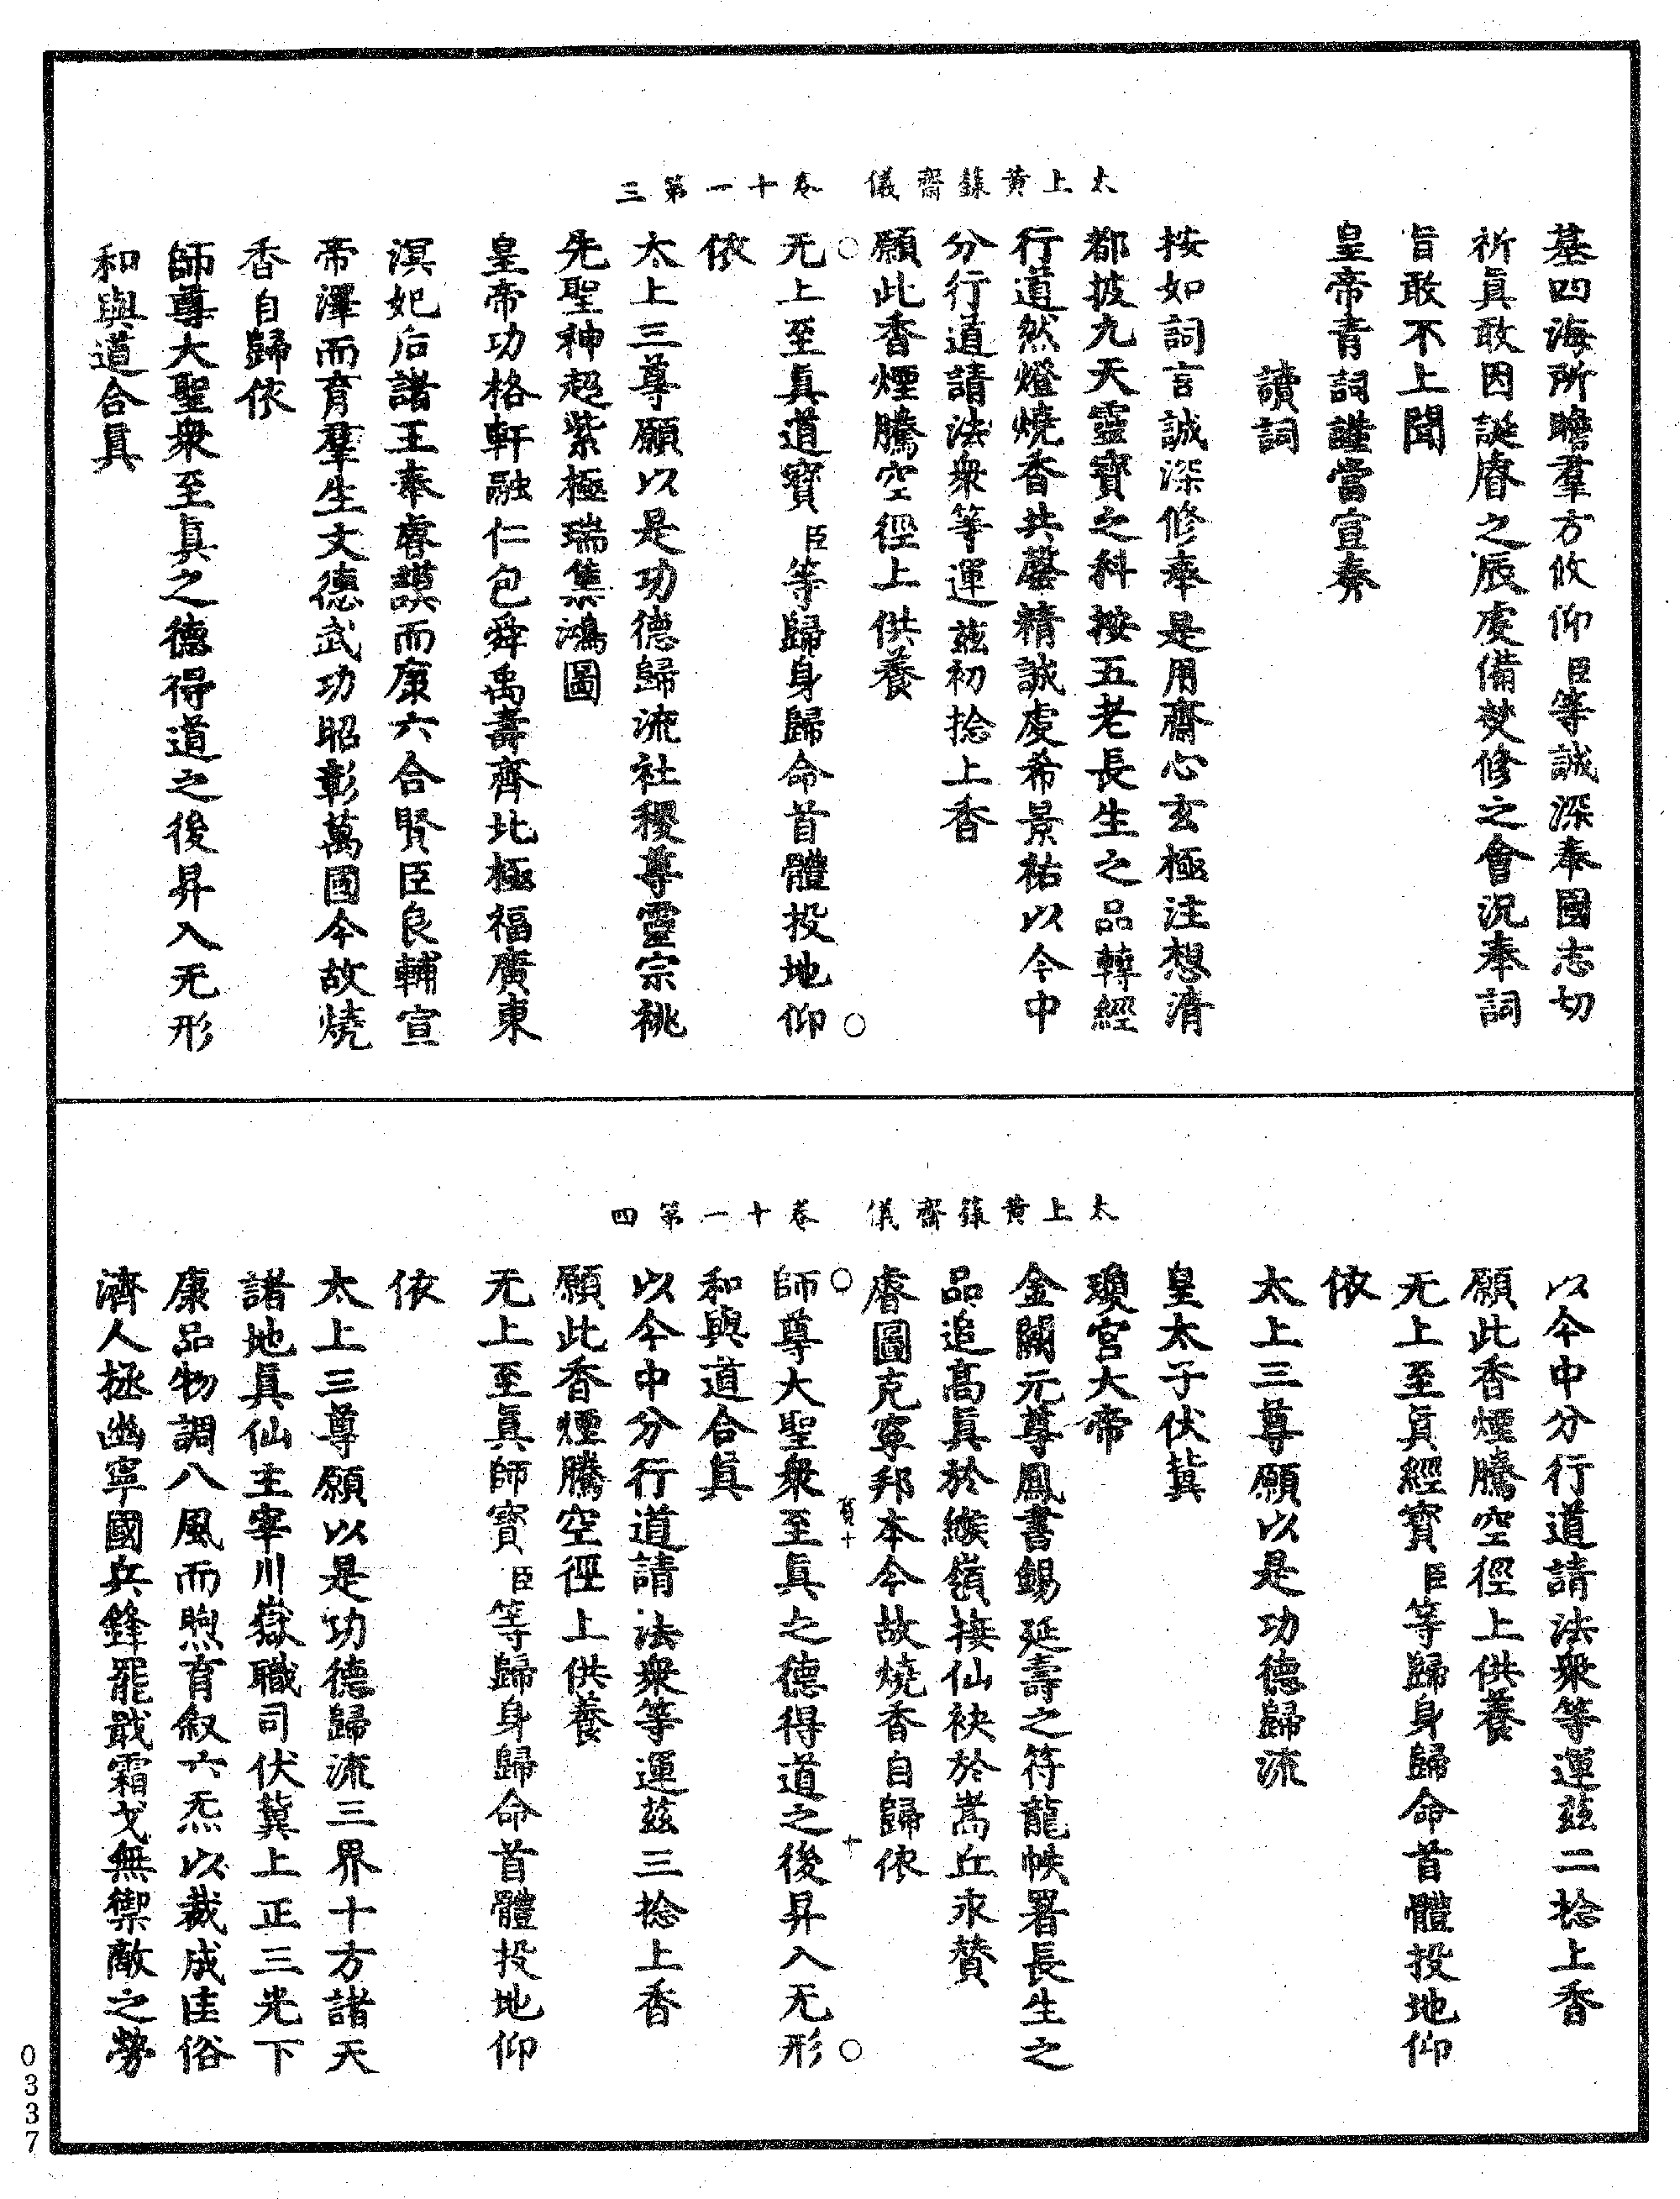 太上黃籙齋儀　卷十一第三
基四海所瞻羣方攸仰臣等誠深奉國志切
祈眞敢因誕睿之辰虔備焚修之會況奉詞
旨敢不上聞
皇帝青詞謹當宣奏
讀詞
按如詞言誠深修奉是用齋心玄極注想清
都披九天靈寶之科按五老長生之品轉經
行道然燈燒香共罄精誠虔希景祐以今中
分行道請法衆等運茲初捻上香
願此香煙騰空徑上供養
无上至眞道寶臣等歸身歸命首體投地仰
依
太上三尊願以是功德歸流社稷尊靈宗祧
先聖神超紫極瑞集鴻圖
皇帝功格軒融仁包舜禹壽齊北極福廣東
溟妃后諸王奉睿謨而康六合賢臣良輔宣
帝澤而育羣生文德武功昭彰萬國今故燒
香自歸依
師尊大聖衆至眞之德得道之後昇入无形
和與道合眞
太上黃籙齋儀　卷十一第四
以今中分行道請法衆等運茲二捻上香
願此香煙騰空徑上供養
无上至眞經寶臣等歸身歸命首體投地仰
依
太上三尊願以是功德歸流
皇太子伏冀
瓊宮大帝
金闕元尊鳳書錫延壽之符龍帙署長生之
品追高眞於緱嶺接仙袂於嵩丘永贊
睿圖克寧邦本今故燒香自歸依
師尊大聖衆至眞之德得道之後昇入无形
和與道合眞
以今中分行道請法衆等運茲三捻上香
願此香煙騰空徑上供養
无上至眞師寶臣等歸身歸命首體投地仰
依
太上三尊願以是功德歸流三界十方諸天
諸地眞仙主宰川嶽職司伏冀上正三光下
康品物調八風而煦育叙六炁以裁成佳俗
濟人拯幽寧國兵鋒罷戢霜戈無禦敵之勞
0337